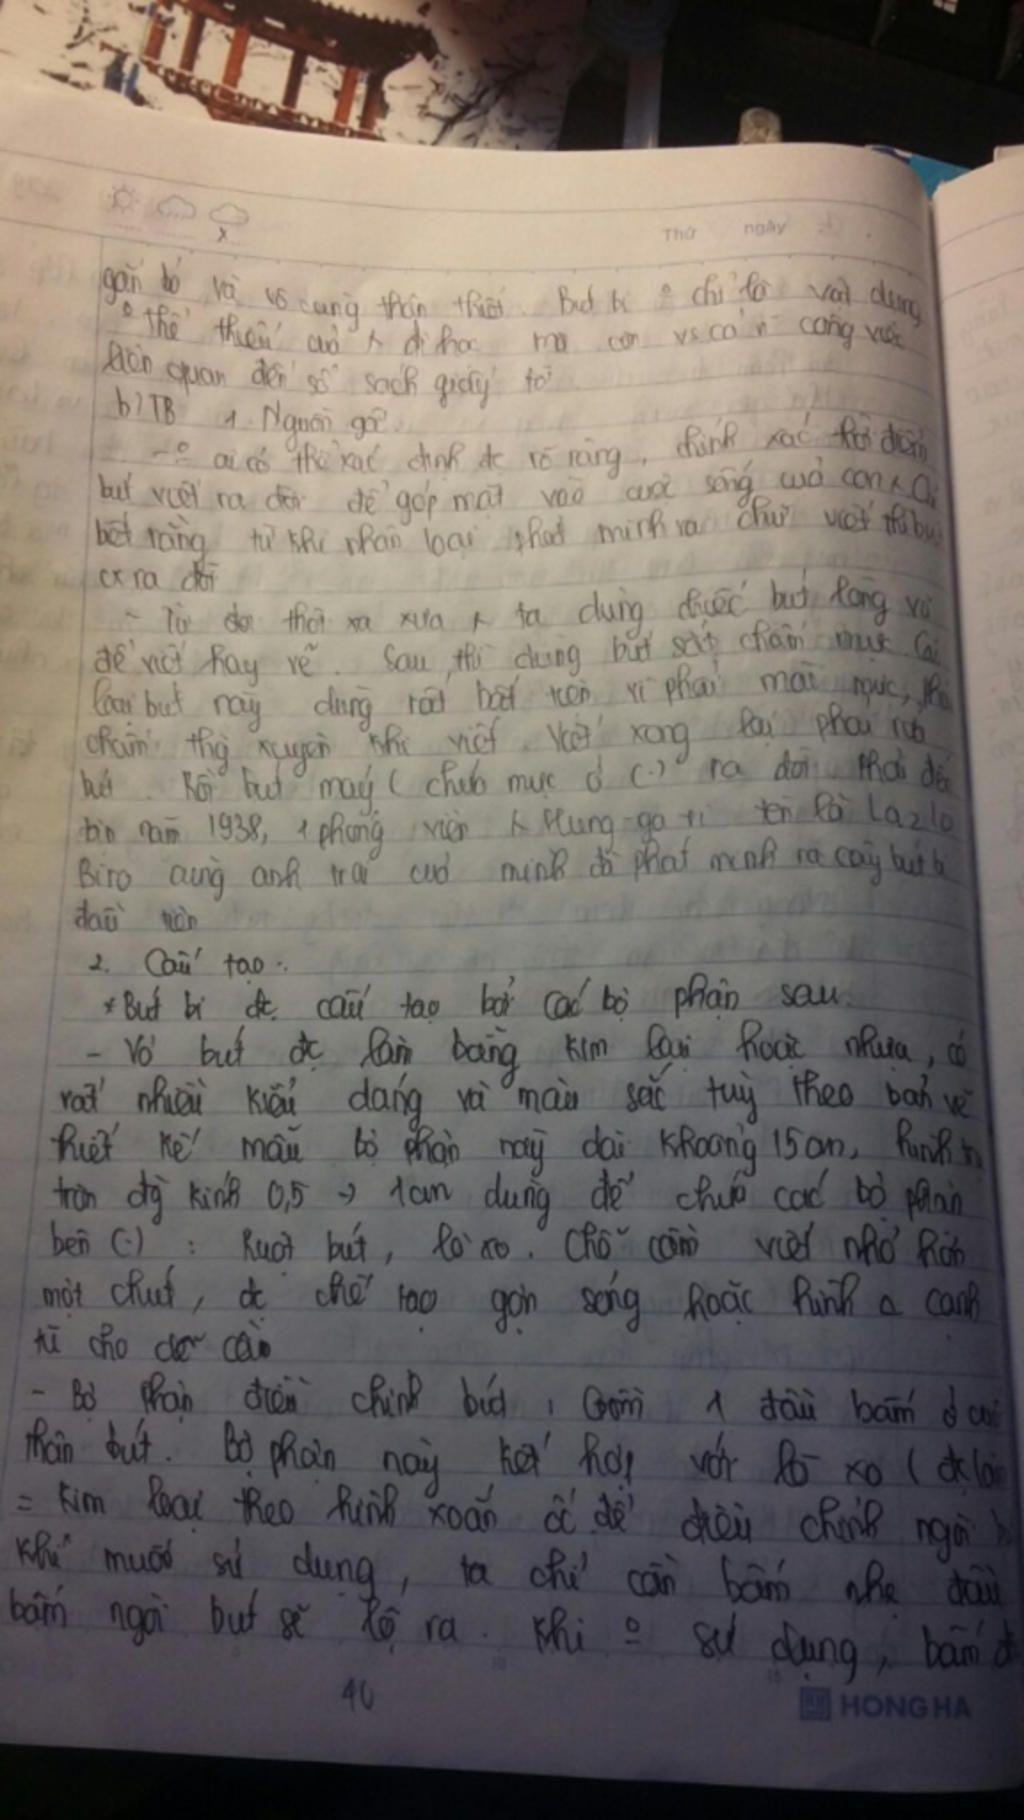 Thứ ngày
gắn bó và vô cùng thân thiết. Bút bi o chỉ là vật dụng
o thể thiếu của h đi học mà còn vs cả n~ công việc
liên quan đến sổ sách giấy tờ
b) TB 1. Nguồn gốc
- o ai có thể xác định đc rõ ràng, chính xác thời điểm
bút viết ra đời để góp mặt vào cuộc sống của con
biết rằng từ khi nhân loại phát minh ra chữ viết thì bút
cx ra đời
- Từ thời xa xưa ta dùng chiếc bút lông vũ
để viết hay vẽ. Sau, thì dùng bút sắt chấm mực. Các
loại bút này dùng rất bất tiện vì phải mài mực, phải
chấm thg xuyên khi viết. Viết xong lại phải rửa
bút. Rồi bút máy (chứa mực ở (.) ra đời. Phải đến
năm 1938, 1 phóng viên Hung-ga-ri tên là Lazlo
Biro cùng anh trai của mình đã phát minh ra cây bút bi
đầu tiên
2. Cấu tạo.
* Bút bi đc cấu tạo bởi các bộ phận sau.
- Vỏ bút đc làm bằng kim loại hoặc nhựa, có
rất nhiều kiểu dáng và màu sắc tuỳ theo bản vẽ
thiết kế mẫu bộ phận này dài khoảng 15cm, hình
tròn đg kính 0,5 -> 1cm dùng để chứa các bộ phận
bên (.) : Ruột bút, lò xo. Chỗ cầm viết nhỏ hơn
một chút, đc chế tạo gợn sóng hoặc hình △ cạnh
tù cho dễ cầm
- Bộ phận điều chỉnh bút : Gồm 1 đầu bấm ở cuối
thân bút. Bộ phận này kết hợp với lò xo (đc làm
= kim loại theo hình xoắn ốc để điều chỉnh ngòi
khi muốn sử dụng, ta chỉ cần bấm nhẹ đầu
bấm ngòi bút sẽ lộ ra. Khi o sử dụng, bấm
40
HONG HA